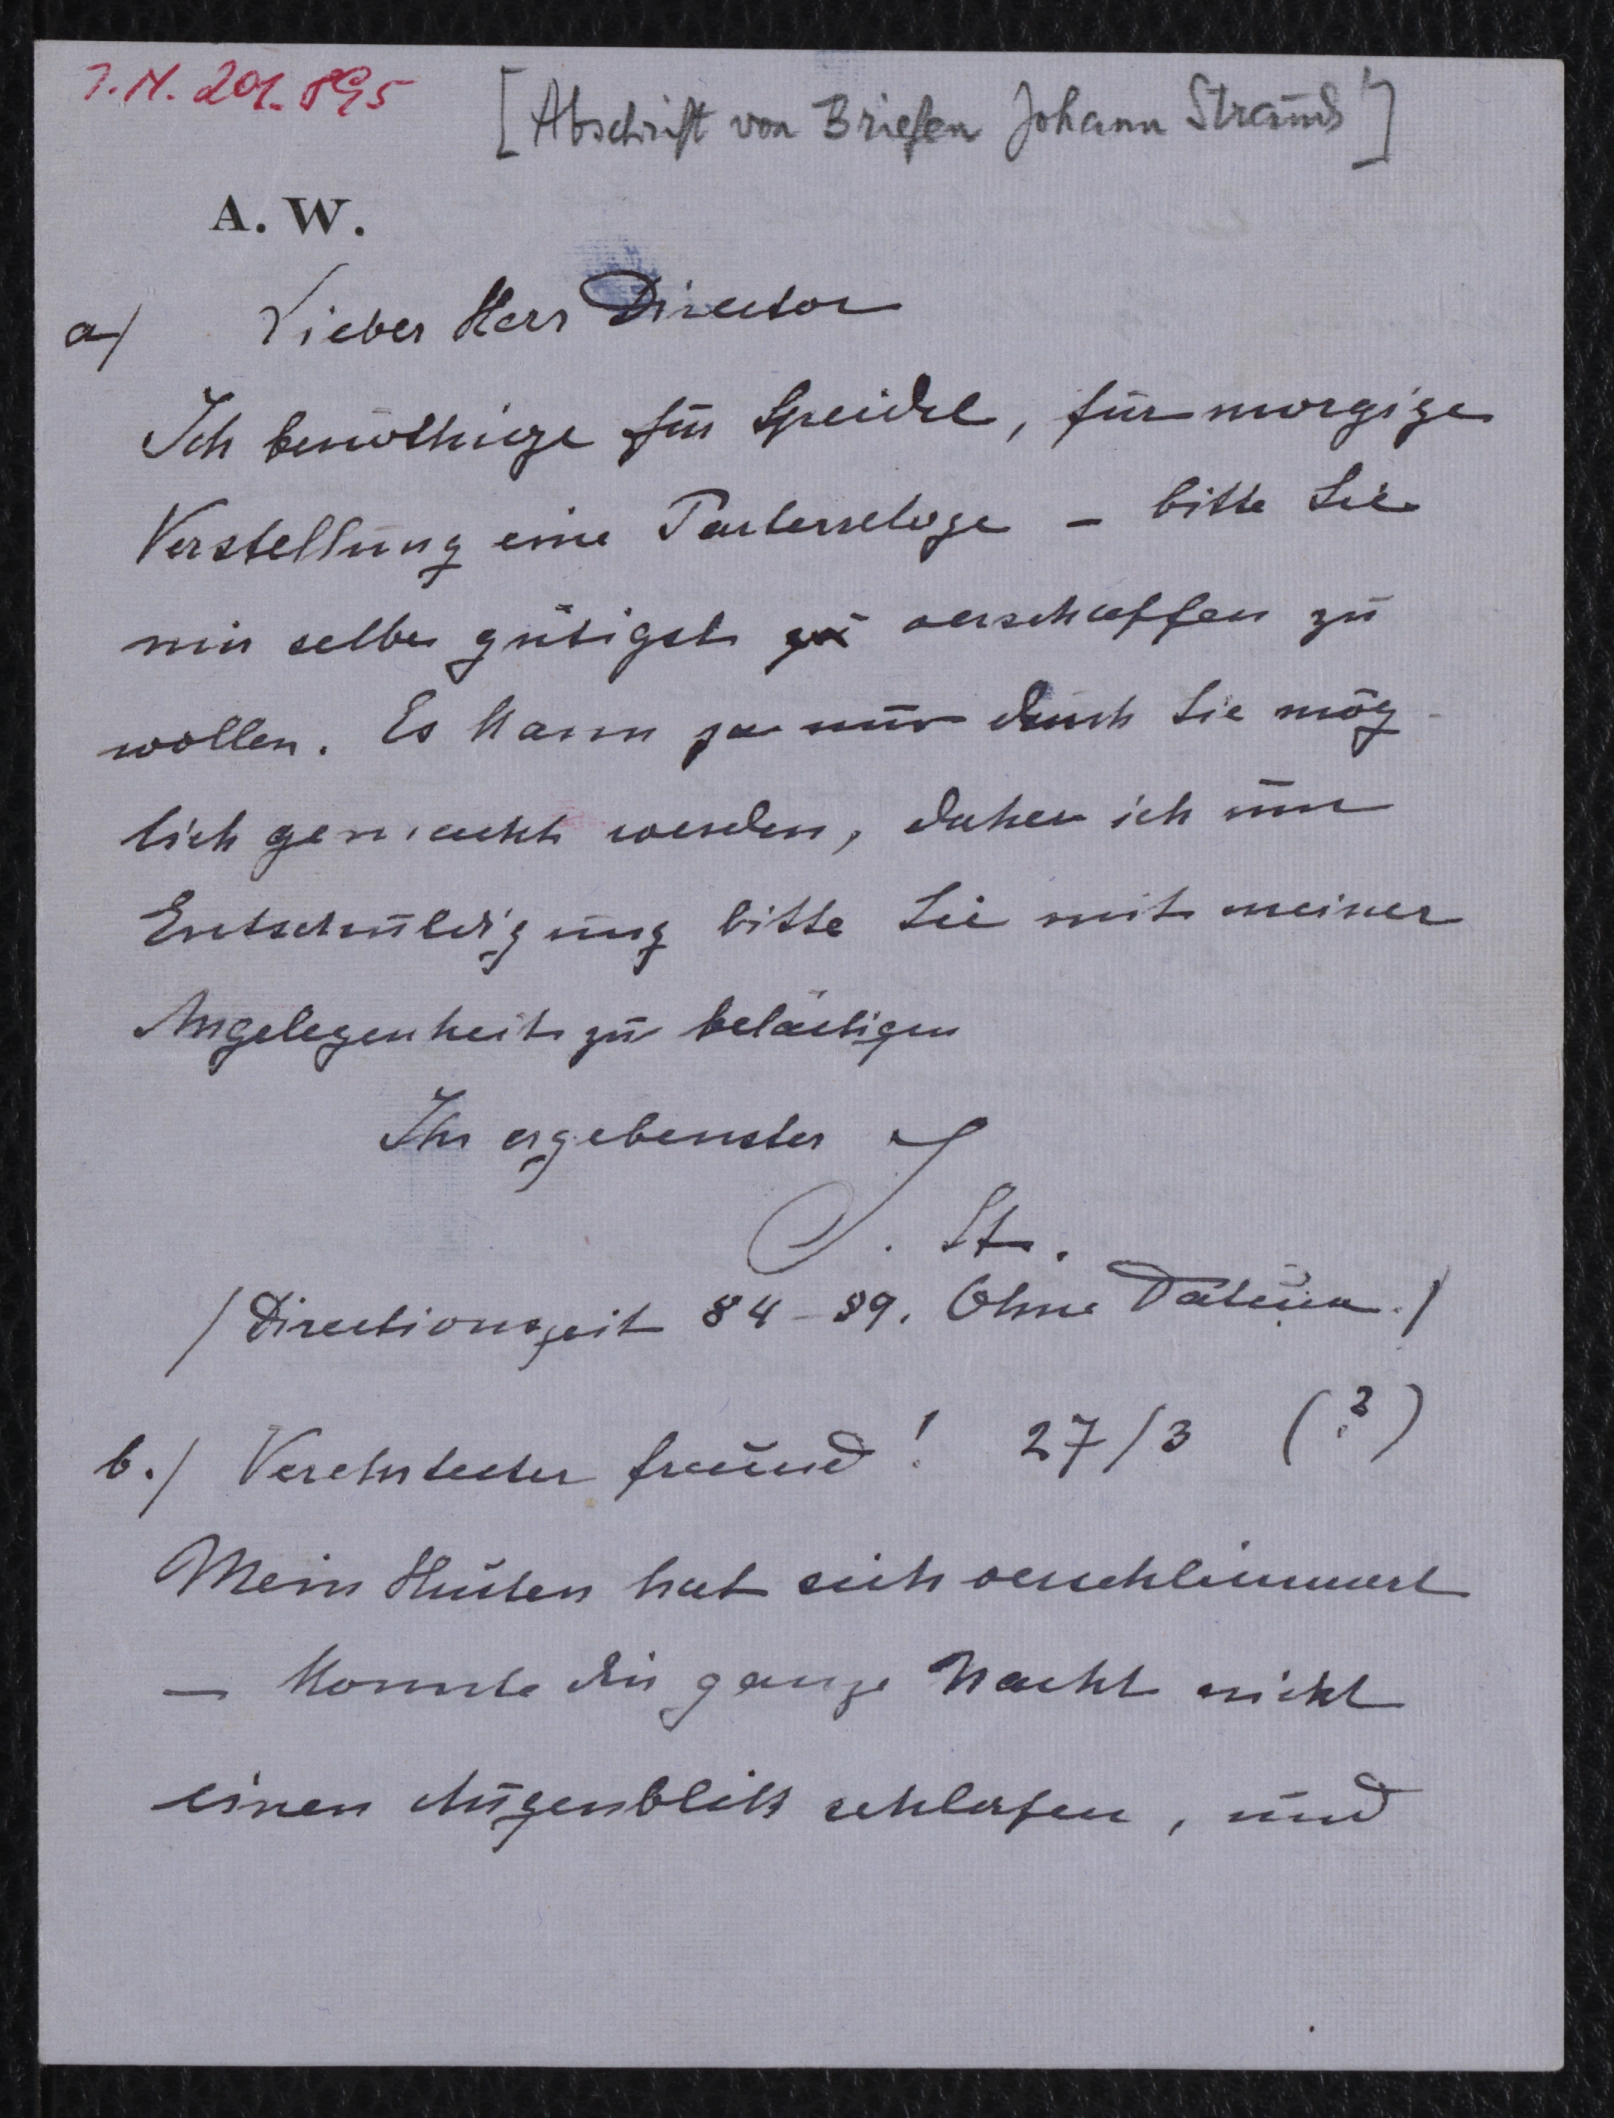 I.N. 201.895
[Abschrift von Briefen Johann Strauss']
A. W.
a/ Lieber Herr Director
Ich benöthige für Speidel, für morgige
Vorstellung eine Parterreloge – bitte Sie
mir selbe gütigst zu verschaffen zu
wollen. Es kann ja nur durch Sie mög-
lich gemacht werden, daher ich um
Entschuldigung bitte Sie mit meiner
Angelegenheit zu belästigen
Ihr ergebenster
J. St.
/Directionszeit 84–89. Ohne Datum./
b./ Verehrtester Freund! 27/3 (?)
Mein Husten hat sich verschlimmert
– konnte die ganze Nacht nicht
einen Augenblick schlafen, und